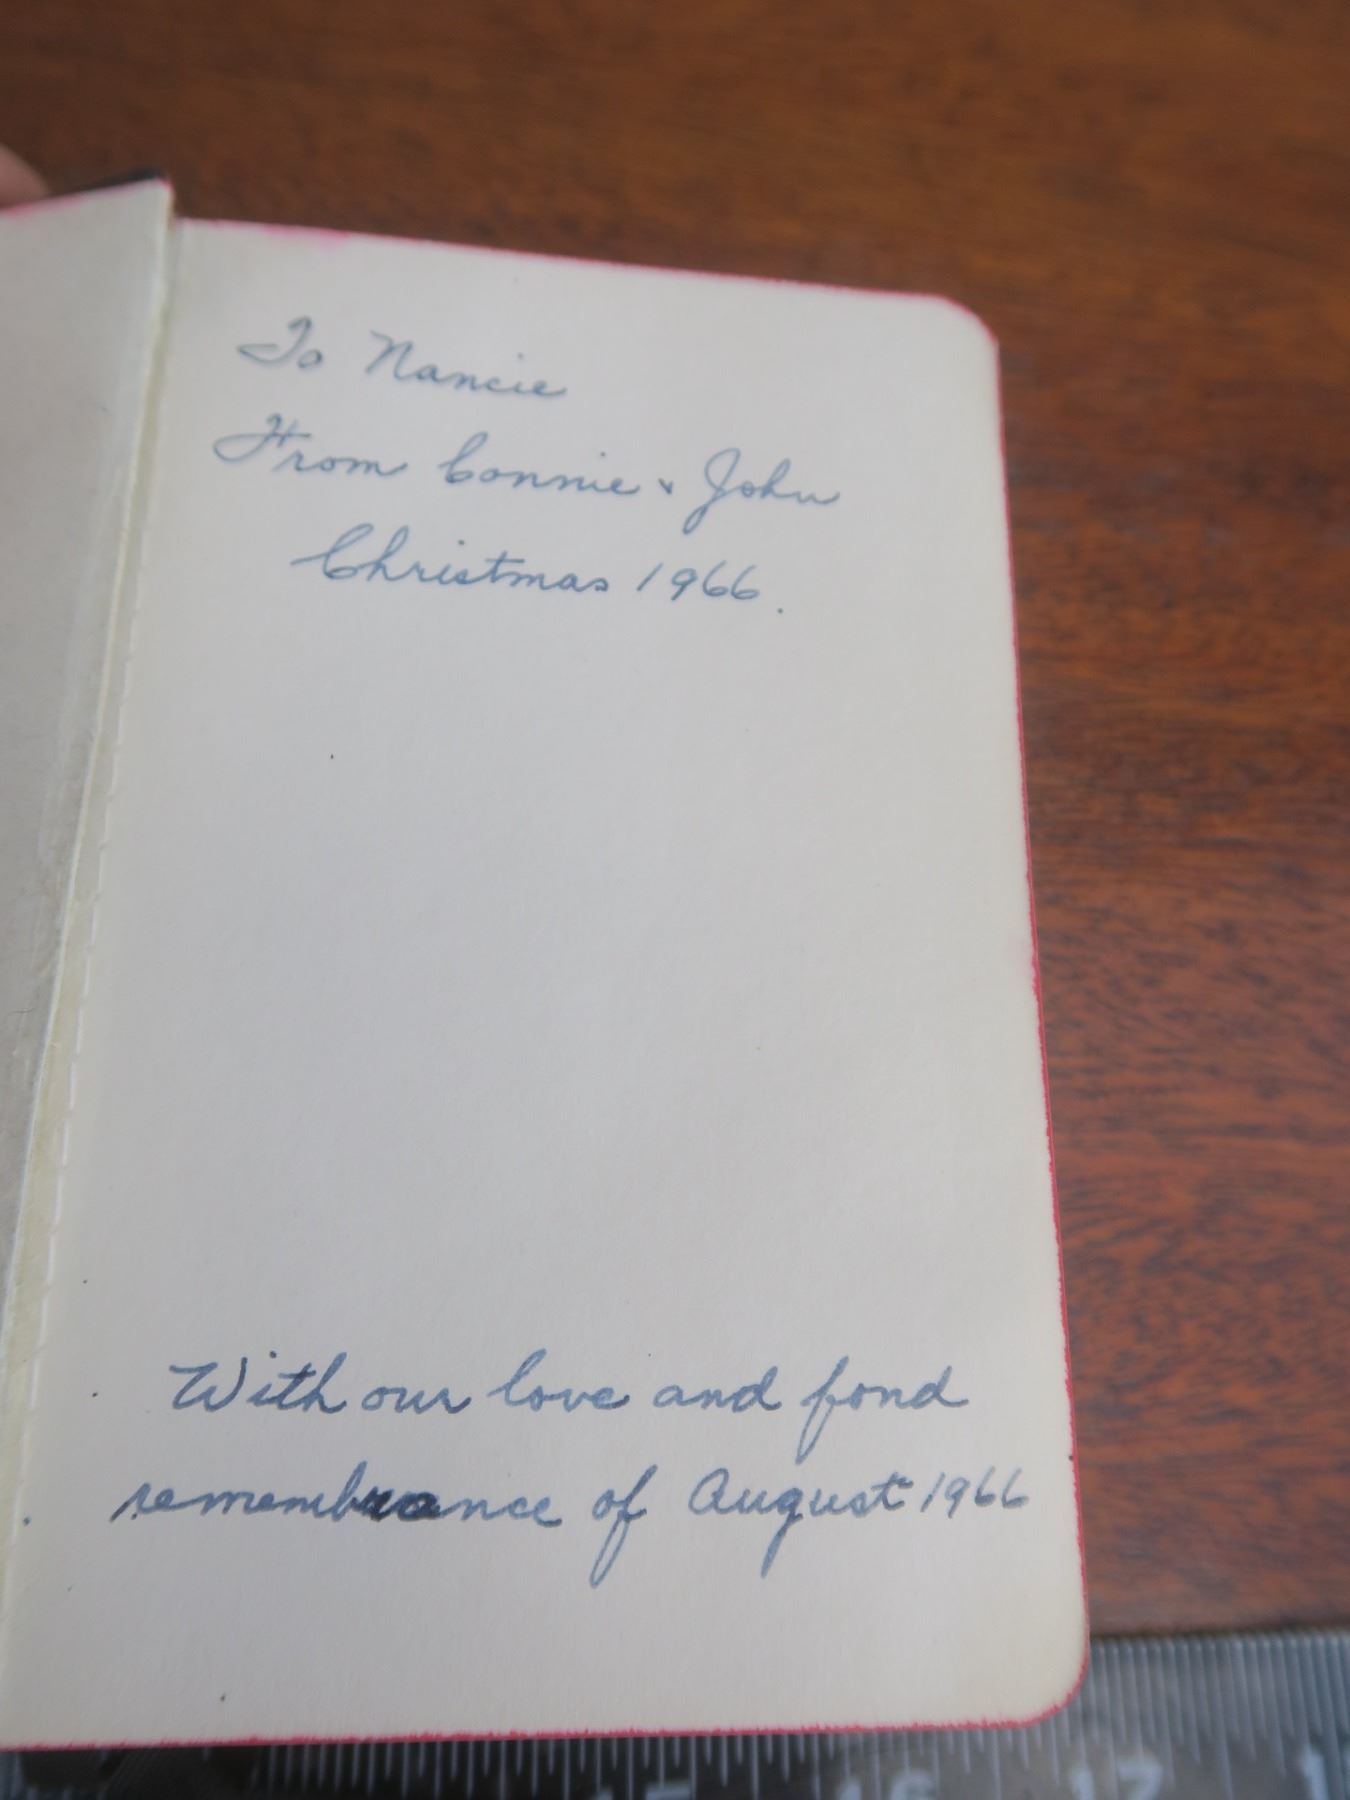 To Nancie
From Connie & John
Christmas 1966.
With our love and fond
remembrance of August 1966
16
17